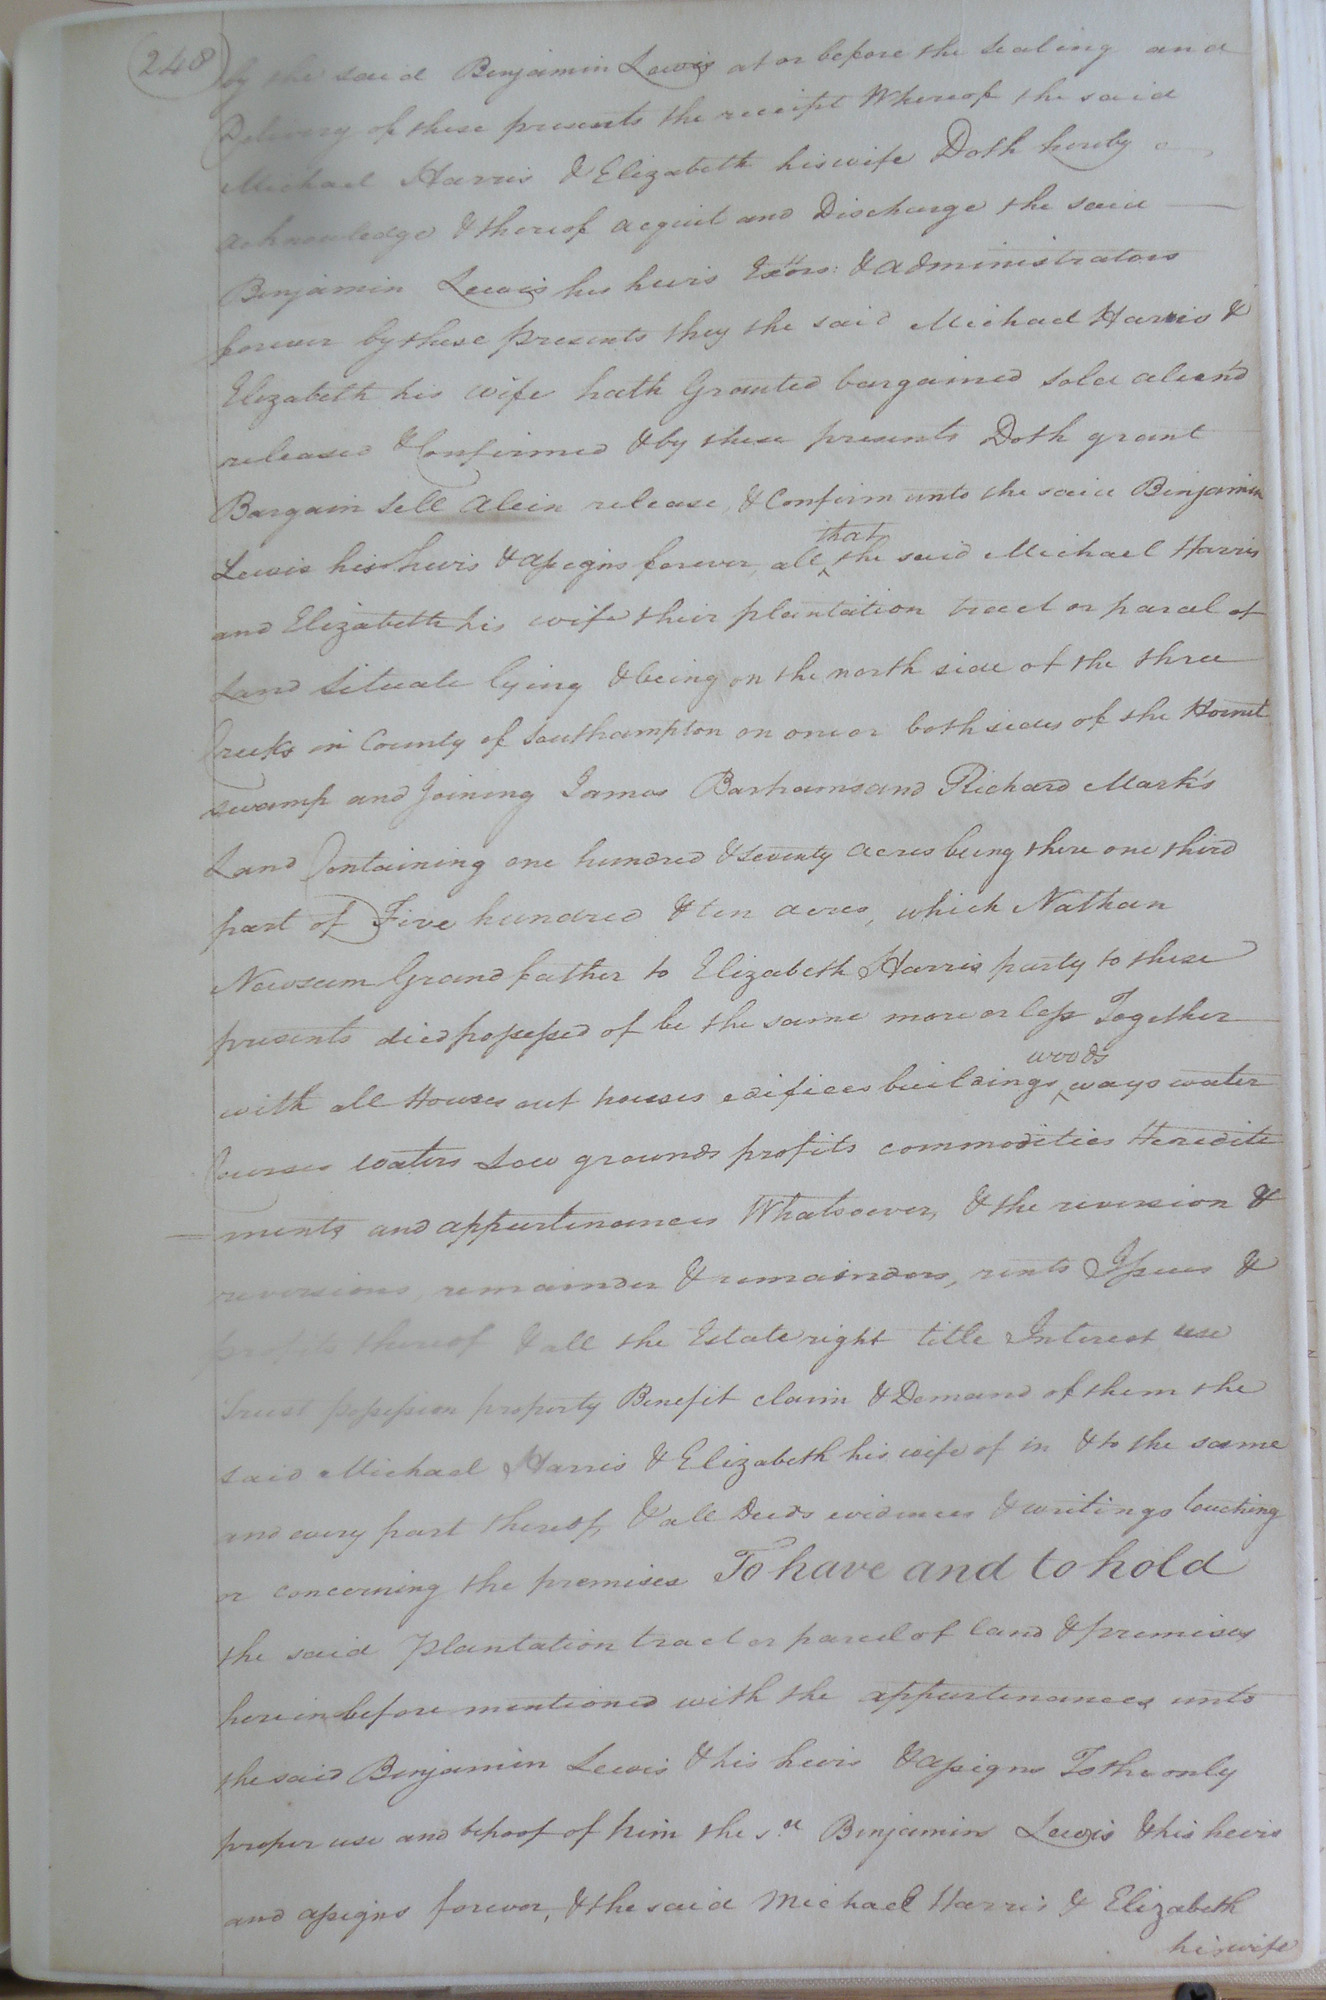 (248)
by the said Benjamin Lewis at or before the sealing and
Delivery of these presents the receipt Whereof the said
Michael Harris & Elizabeth his wife Doth hereby
acknowledge & thereof acquit and Discharge the said
Benjamin Lewis his heirs Exōrs: & administrators
forever by these presents they the said Michael Harris &
Elizabeth his wife hath Granted bargained sold alien'd
released & Confirmed & by these presents Doth grant
Bargain Sell Alein release, & Confirm unto the said Benjamin
Lewis his heirs & assigns forever, all that the said Michael Harris
and Elizabeth his wife their plantation tract or parcel of
Land Situate lying & being on the north side of the three
Creeks in County of Southampton on one or both sides of the Hornet
swamp and Joining James Barhams and Richard Mark's
Land Containing one hundred & seventy acres being there one third
part of Five hundred & ten acres, which Nathan
Newsum Grandfather to Elizabeth Harris party to these
presents died possessed of be the same more or less Together
with all Houses out houses edifices buildings woods ways water
Courses waters Low grounds profits commodities Heredite
ments and appurtinances Whatsoever, & the reversion &
reversions, remainder & remainders, rents Issues &
profits thereof & all the Estate right title Interest use
Trust possession property Benefit claim & Demand of them the
said Michael Harris & Elizabeth his wife of in & to the same
and every part thereof, & all Deeds evidences & writings touching
or concerning the premises To have and to hold
the said Plantation tract or parcel of land & premises
herein before mentioned with the appurtenances unto
the said Benjamin Lewis & his heirs & assigns To the only
proper use and behoof of him the sd Benjamin Lewis & his heirs
and assigns forever, & the said Michael Harris & Elizabeth
his wife